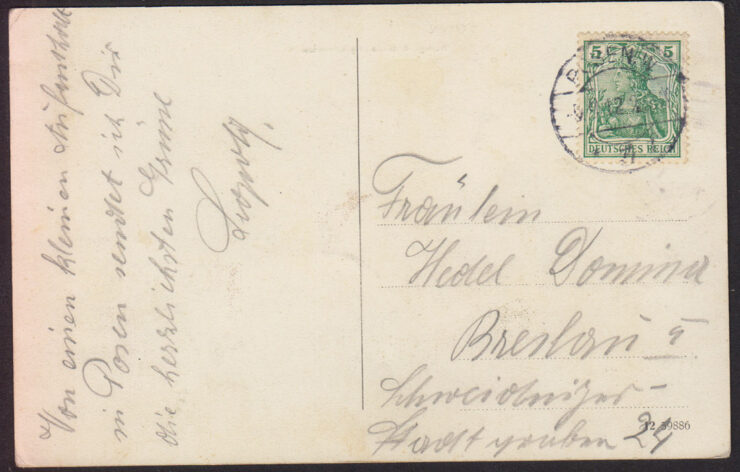 Von einen kleinen Aufenthalt
in Posen sendet ich Dir
die herzlichsten Grüße
5 5
POSEN
DEUTSCHES REICH
Fräulein
Hedel Domina
Breslau 5
Schweidnitzer-
Stadtgraben 24
12 39886